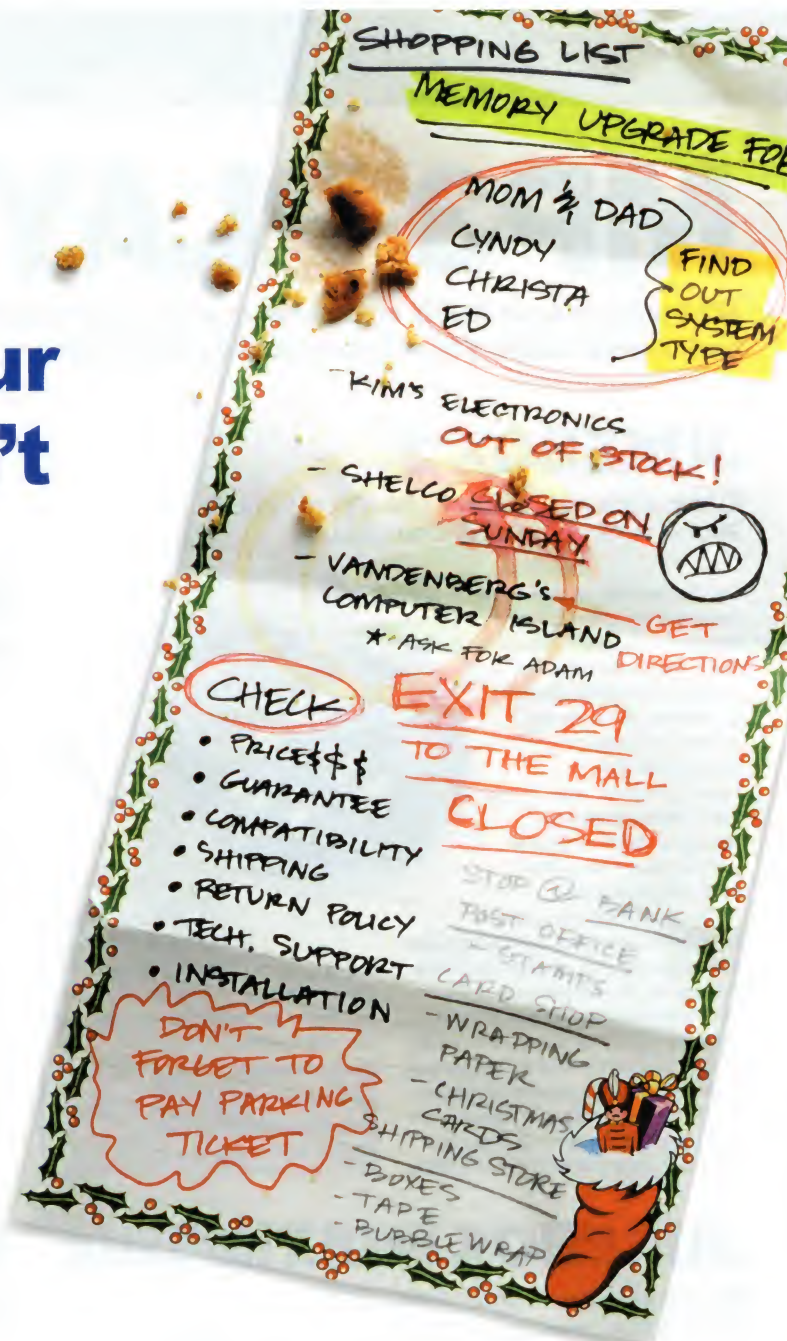 ur
't
SHOPPING LIST
MEMORY UPGRADE FOR
MOM & DAD
CYNDY
CHRISTA
ED
FIND
OUT
SYSTEM
TYPE
- KIM'S ELECTRONICS
OUT OF STOCK!
- SHELCO CLOSED ON
SUNDAY
- VANDENBERG'S
COMPUTER ISLAND
* ASK FOR ADAM
GET
DIRECTIONS
CHECK
• PRICE$$$
• GUARANTEE
• COMPATIBILITY
• SHIPPING
• RETURN POLICY
• TECH. SUPPORT
• INSTALLATION
EXIT 29
TO THE MALL
CLOSED
STOP @ BANK
POST OFFICE
- STAMPS
CARD SHOP
- WRAPPING
PAPER
- CHRISTMAS
CARDS
SHIPPING STORE
- BOXES
- TAPE
- BUBBLE WRAP
DON'T
FORGET TO
PAY PARKING
TICKET